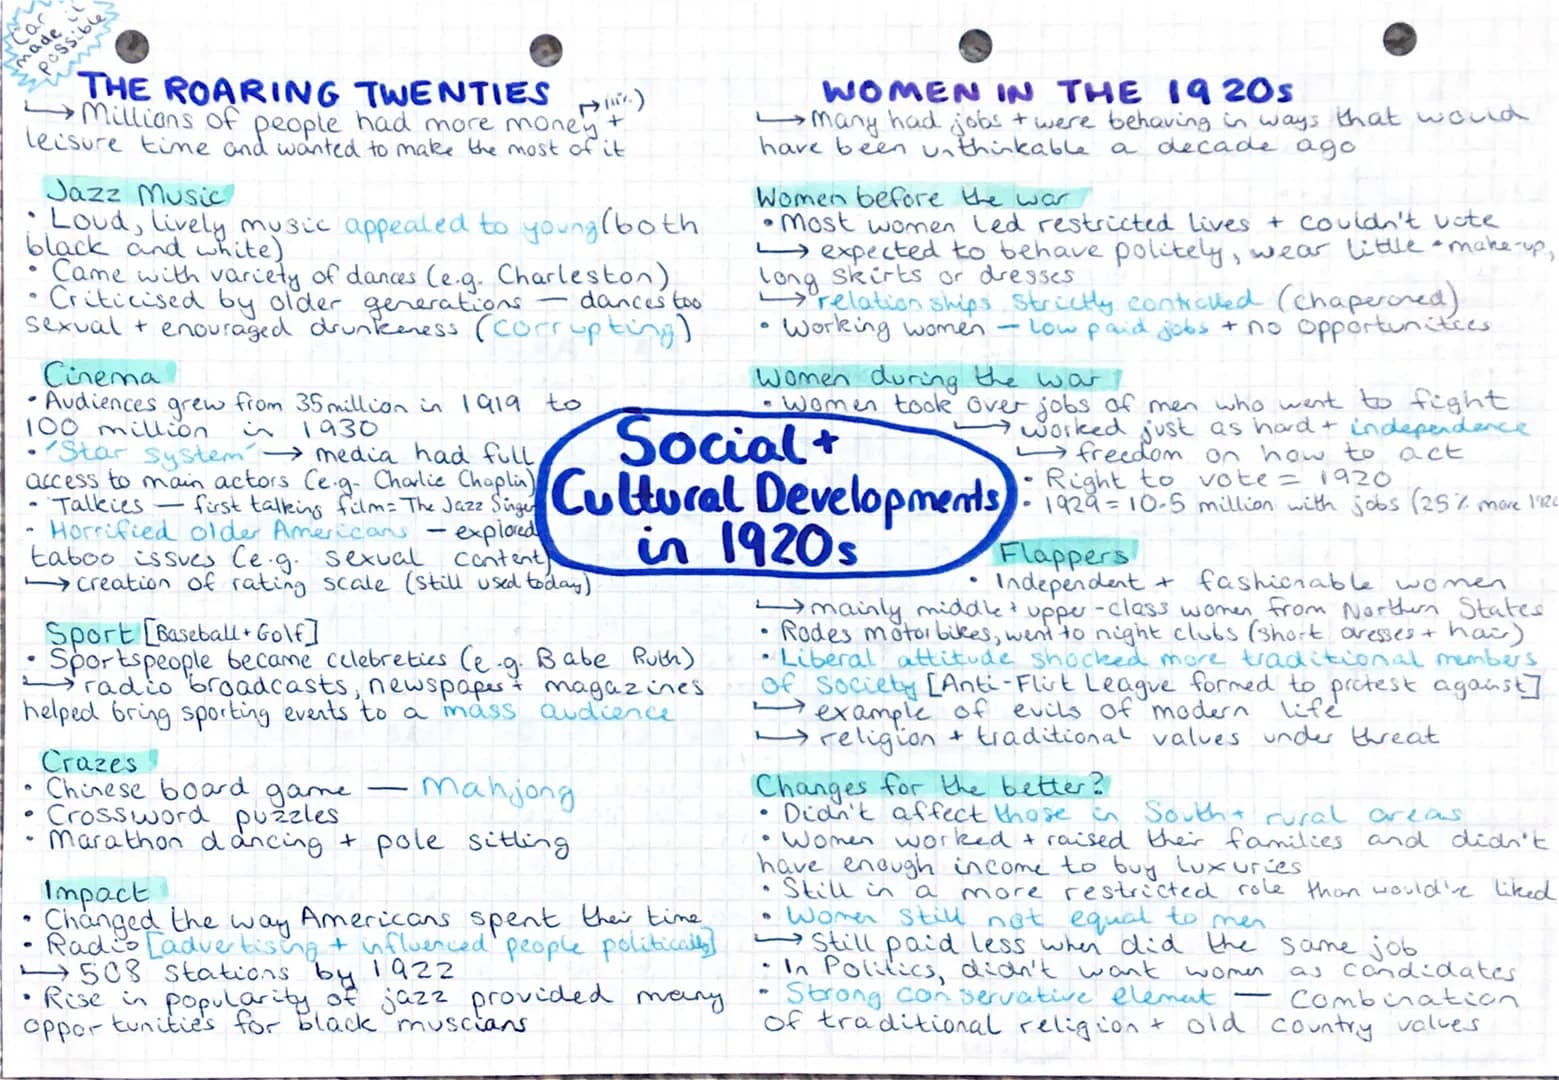 Car
made it
possible
THE ROARING TWENTIES
↳ Millions of people had more money +
leisure time and wanted to make the most of it
Jazz Music
• Loud, lively music appealed to young (both
black and white)
• Came with variety of dances (e.g. Charleston)
• Criticised by older generations — dances too
sexual + enouraged drunkeness (corrupting)
Cinema
• Audiences grew from 35 million in 1919 to
100 million in 1930
• 'Star System' → media had full
access to main actors (e.g. Charlie Chaplin)
• Talkies — first talking film = The Jazz Singer
• Horrified older Americans — explored
taboo issues (e.g. sexual content)
↳ creation of rating scale (still used today)
Sport [Baseball + Golf]
• Sportspeople became celebreties (e.g. Babe Ruth)
↳ radio broadcasts, newspapers + magazines
helped bring sporting events to a mass audience
Crazes
• Chinese board game — Mahjong
• Crossword puzzles
• Marathon dancing + pole sitting
Impact
• Changed the way Americans spent their time
• Radio [advertising + influenced people politically]
↳ 508 stations by 1922
• Rise in popularity of jazz provided many
opportunities for black muscians
Social +
Cultural Developments
in 1920s
WOMEN IN THE 1920s
↳ Many had jobs + were behaving in ways that would
have been unthinkable a decade ago
Women before the war
• Most women led restricted lives + couldn't vote
↳ expected to behave politely, wear little make-up,
long skirts or dresses
↳ relationships strictly controlled (chaperoned)
• Working women — low paid jobs + no opportunities
Women during the war
• Women took over jobs of men who went to fight
↳ worked just as hard + independence
↳ freedom on how to act
• Right to vote = 1920
• 1929 = 10.5 million with jobs (25% more
Flappers
• Independent + fashionable women
↳ mainly middle + upper-class women from Northern States
• Rodes motorbikes, went to night clubs (short dresses + hair)
• Liberal attitude shocked more traditional members
of society [Anti-Flirt League formed to protest against]
↳ example of evils of modern life
↳ religion + traditional values under threat
Changes for the better?
• Didn't affect those in South + rural areas
• Women worked + raised their families and didn't
have enough income to buy luxuries
• Still in a more restricted role than would've liked
• Women still not equal to men
↳ Still paid less when did the same job
• In Politics, didn't want women as candidates
• Strong conservative element — combination
of traditional religion + old country values